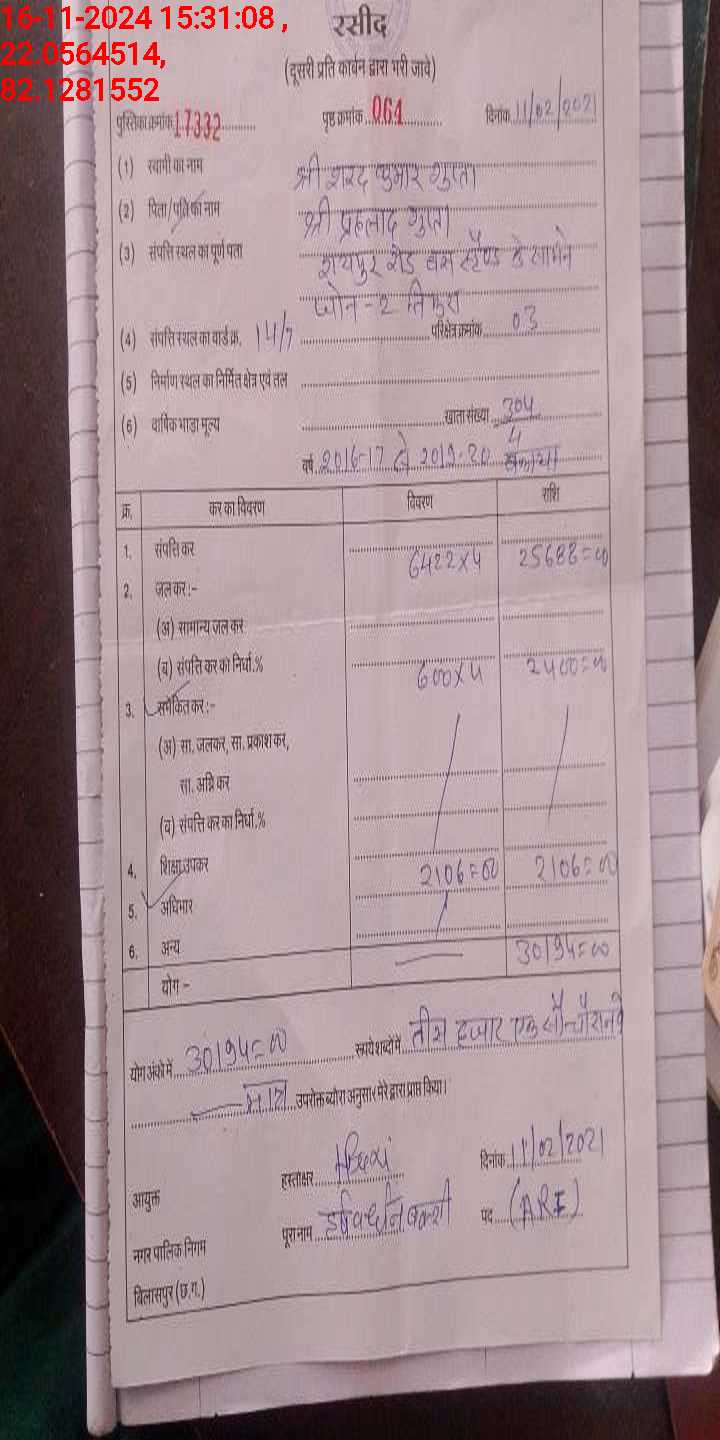 16-11-2024 15:31:08 ,
22.0564514,
82.1281552
रसीद
(दूसरी प्रति कार्बन द्वारा भरी जावे)
पुस्तिका क्रमांक 17332 पृष्ठ क्रमांक 064 दिनांक 11/02/2021
(1) स्वामी का नाम श्री शरद कुमार गुप्ता
(2) पिता/पति का नाम श्री प्रहलाद गुप्ता
(3) संपत्ति स्थल का पूर्ण पता रायपुर रोड बस स्टैण्ड के सामने
जोन-2 तिफरा
(4) संपत्ति स्थल का वार्ड क्र. 14/7 परिक्षेत्र क्रमांक 03
(5) निर्माण स्थल का निर्मित क्षेत्र एवं तल
(6) वार्षिक भाड़ा मूल्य खाता संख्या 304
4
वर्ष 2016-17 से 2019-20 बकाया
क्र. कर का विवरण विवरण राशि
1. संपत्ति कर 6422x4 25688=00
2. जल कर :-
(अ) सामान्य जल कर
(ब) संपत्ति कर का निर्धा.% 600x4 2400=00
3. समेकित कर :-
(अ) सा. जलकर, सा. प्रकाश कर,
सा. अग्नि कर
(ब) संपत्ति कर का निर्धा.%
4. शिक्षा उपकर 2106=00 2106=00
5. अधिभार
6. अन्य 30194=00
योग -
योग अंकों में 30194=00 रूपये शब्दों में तीस हजार एक सौ चौरानवे
मात्र उपरोक्त ब्यौरा अनुसार मेरे द्वारा प्राप्त किया।
हस्ताक्षर दिनांक 11/02/2021
आयुक्त
पूरा नाम हर्षवर्धन बक्शी पद (ARI)
नगर पालिक निगम
बिलासपुर (छ.ग.)